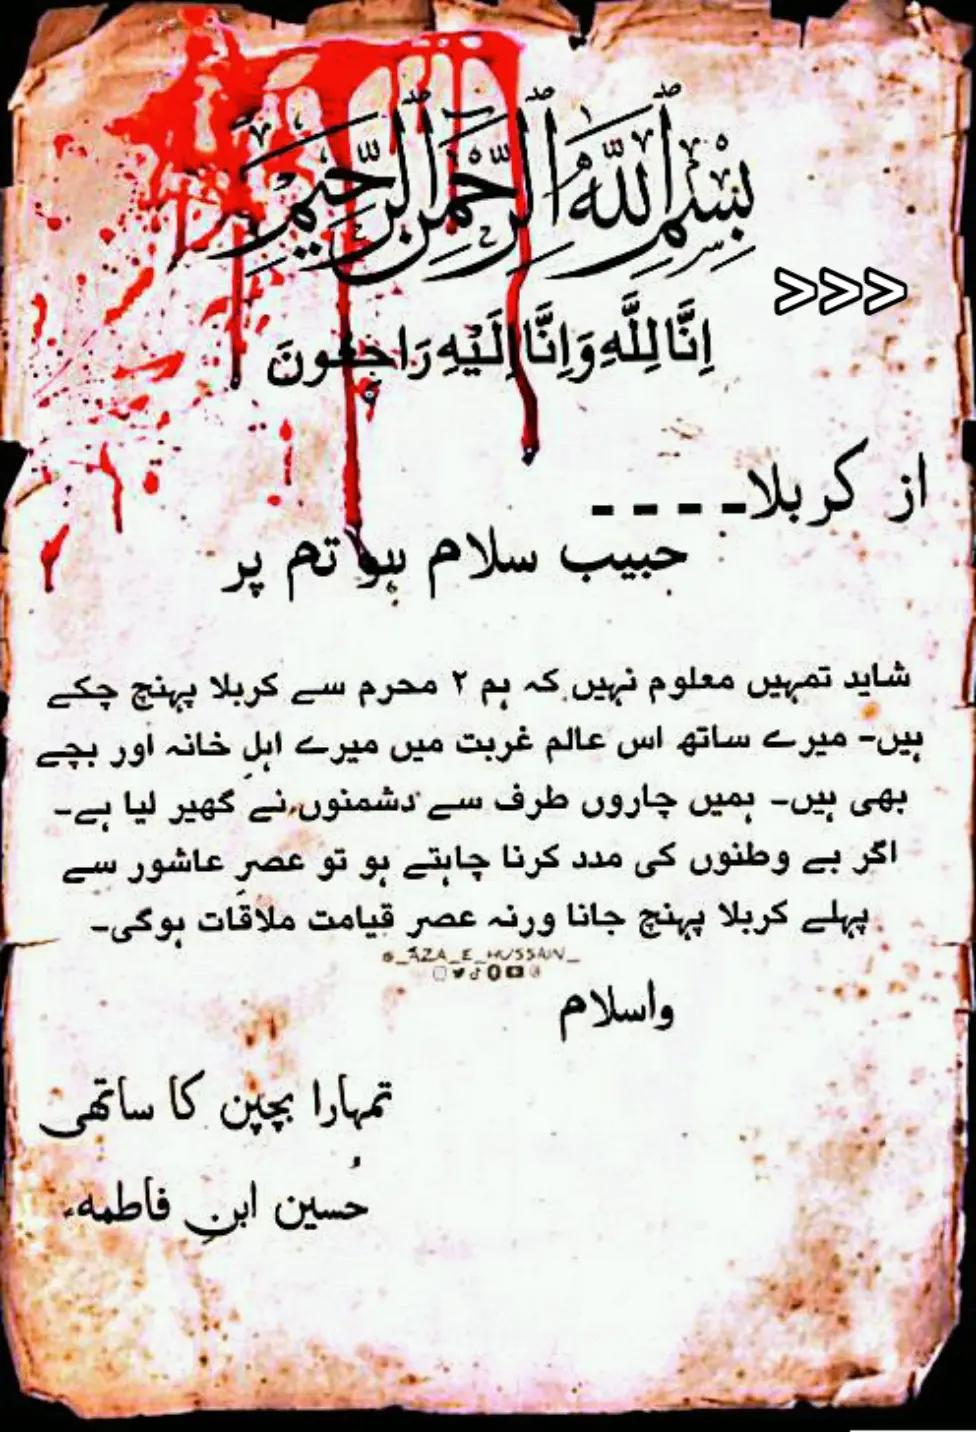 بِسْمِ ٱللّٰهِ ٱلرَّحْمٰنِ ٱلرَّحِيْمِ
>>>
اِنَّا لِلّٰهِ وَاِنَّا اِلَيْهِ رَاجِعُونَ
از کربلا۔ - - -
حبیب سلام ہو تم پر
شاید تمہیں معلوم نہیں کہ ہم ۲ محرم سے کربلا پہنچ چکے
ہیں۔ میرے ساتھ اس عالم غربت میں میرے اہلِ خانہ اور بچے
بھی ہیں۔ ہمیں چاروں طرف سے دشمنوں نے گھیر لیا ہے۔
اگر بے وطنوں کی مدد کرنا چاہتے ہو تو عصرِ عاشور سے
پہلے کربلا پہنچ جانا ورنہ عصر قیامت ملاقات ہوگی۔
@_AZA_E_HUSSAIN_
واسلام
تمہارا بچپن کا ساتھی
حُسین ابنِ فاطمہ۔